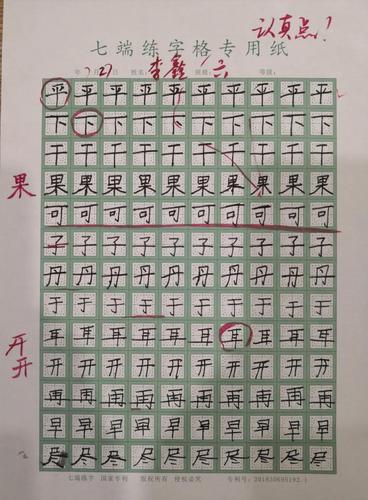 认真点！
七端练字格专用纸
年 7月27日 姓名：李鑫 班级：六 等级：
平平平平平平平平平平
下下下下下下下下下下
干干干干干干干干干干
果 果果果果果果果果果果
可可可可可可可可可可
子子子子子子子子子子
丹丹丹丹丹丹丹丹丹丹
于于于于于于于于于于
耳耳耳耳耳耳耳耳耳耳
开开 开开开开开开开开开开
再再再再再再再再再再
早早早早早早早早早早
尽尽尽尽尽尽尽尽尽尽
七端练字 国家专利 版权所有 侵权必究 专利号：201830695192.1